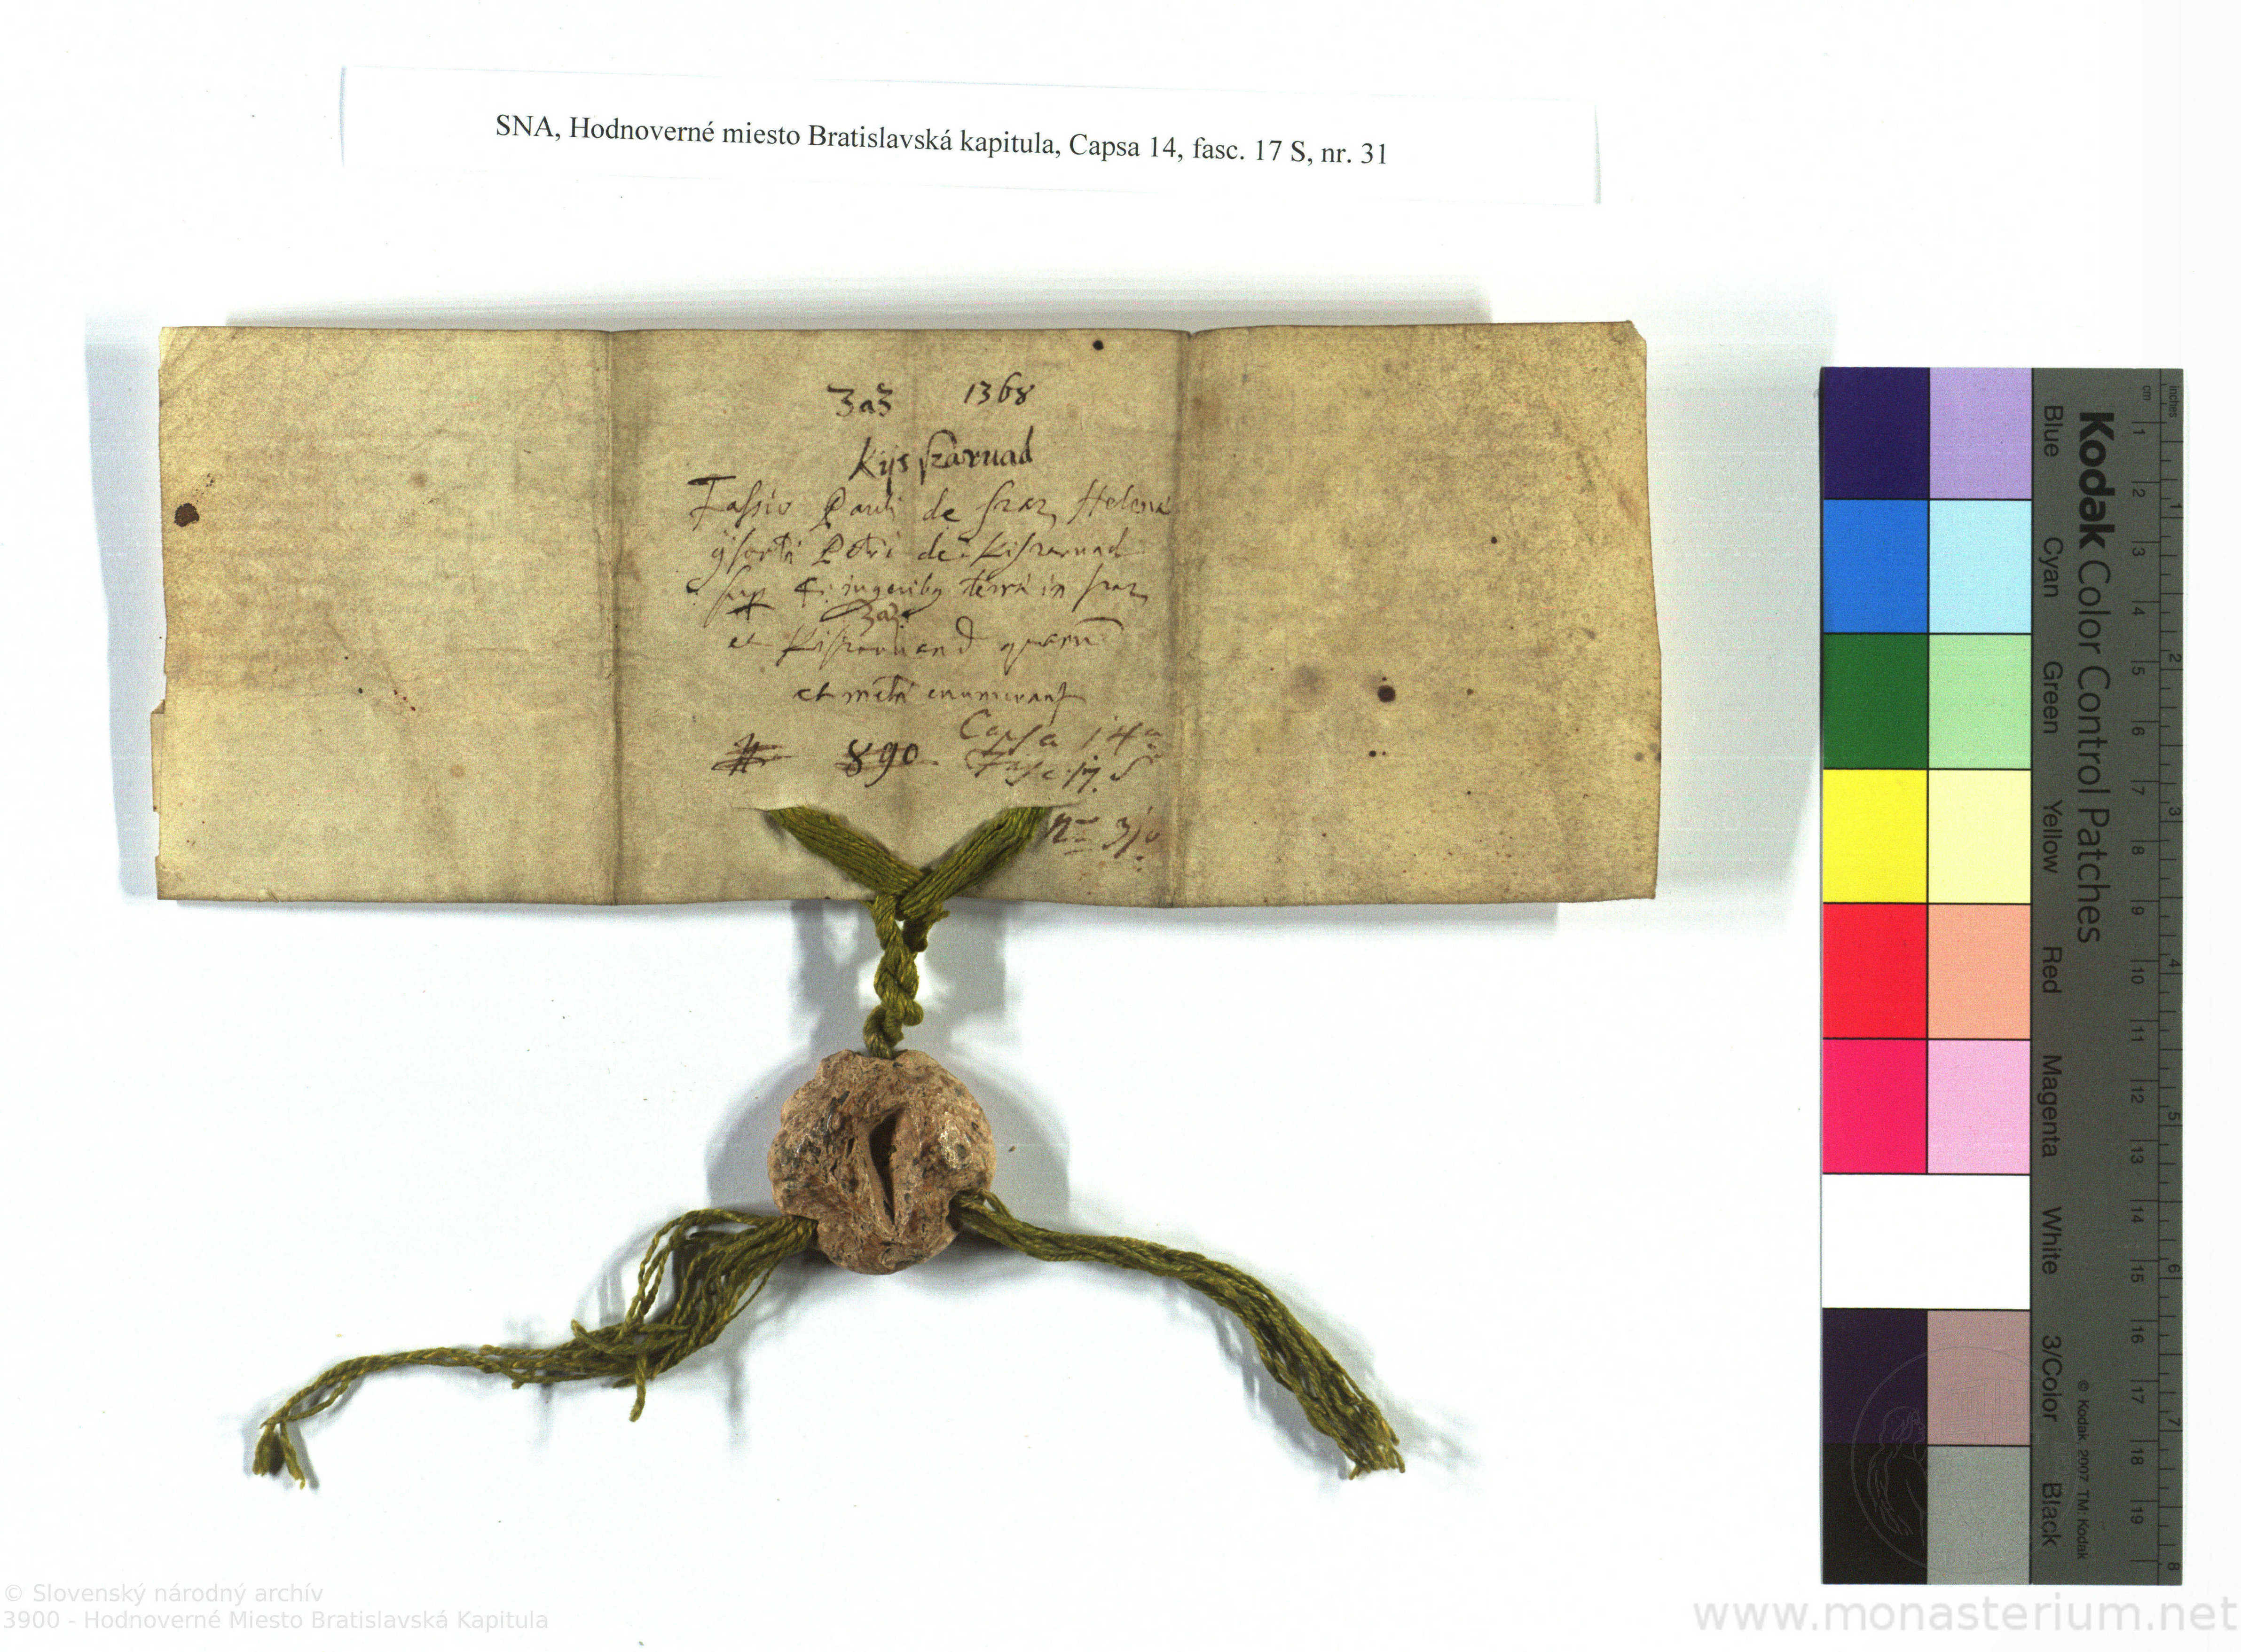 SNA, Hodnoverné miesto Bratislavská kapitula, Capsa 14, fasc. 17 S, nr. 31
3a3 1368
Kys szaruad
Fassio Pauli de szaz Helena
Petri de Kiszaruad
sup ingeribg terra in szaz
3a3
et Kiszaruand quarū
et meta enumerant
890 Capsa 14a
Fasc. 17. S
Nro 31o
Kodak Color Control Patches
Blue Cyan Green Yellow Red Magenta White 3/Color Black
© Kodak 2007 TM: Kodak
inches
cm
1 2 3 4 5 6 7 8 9 10 11 12 13 14 15 16 17 18 19
1 2 3 4 5 6 7 8
© Slovenský národný archív
3900 - Hodnoverné Miesto Bratislavská Kapitula
www.monasterium.net